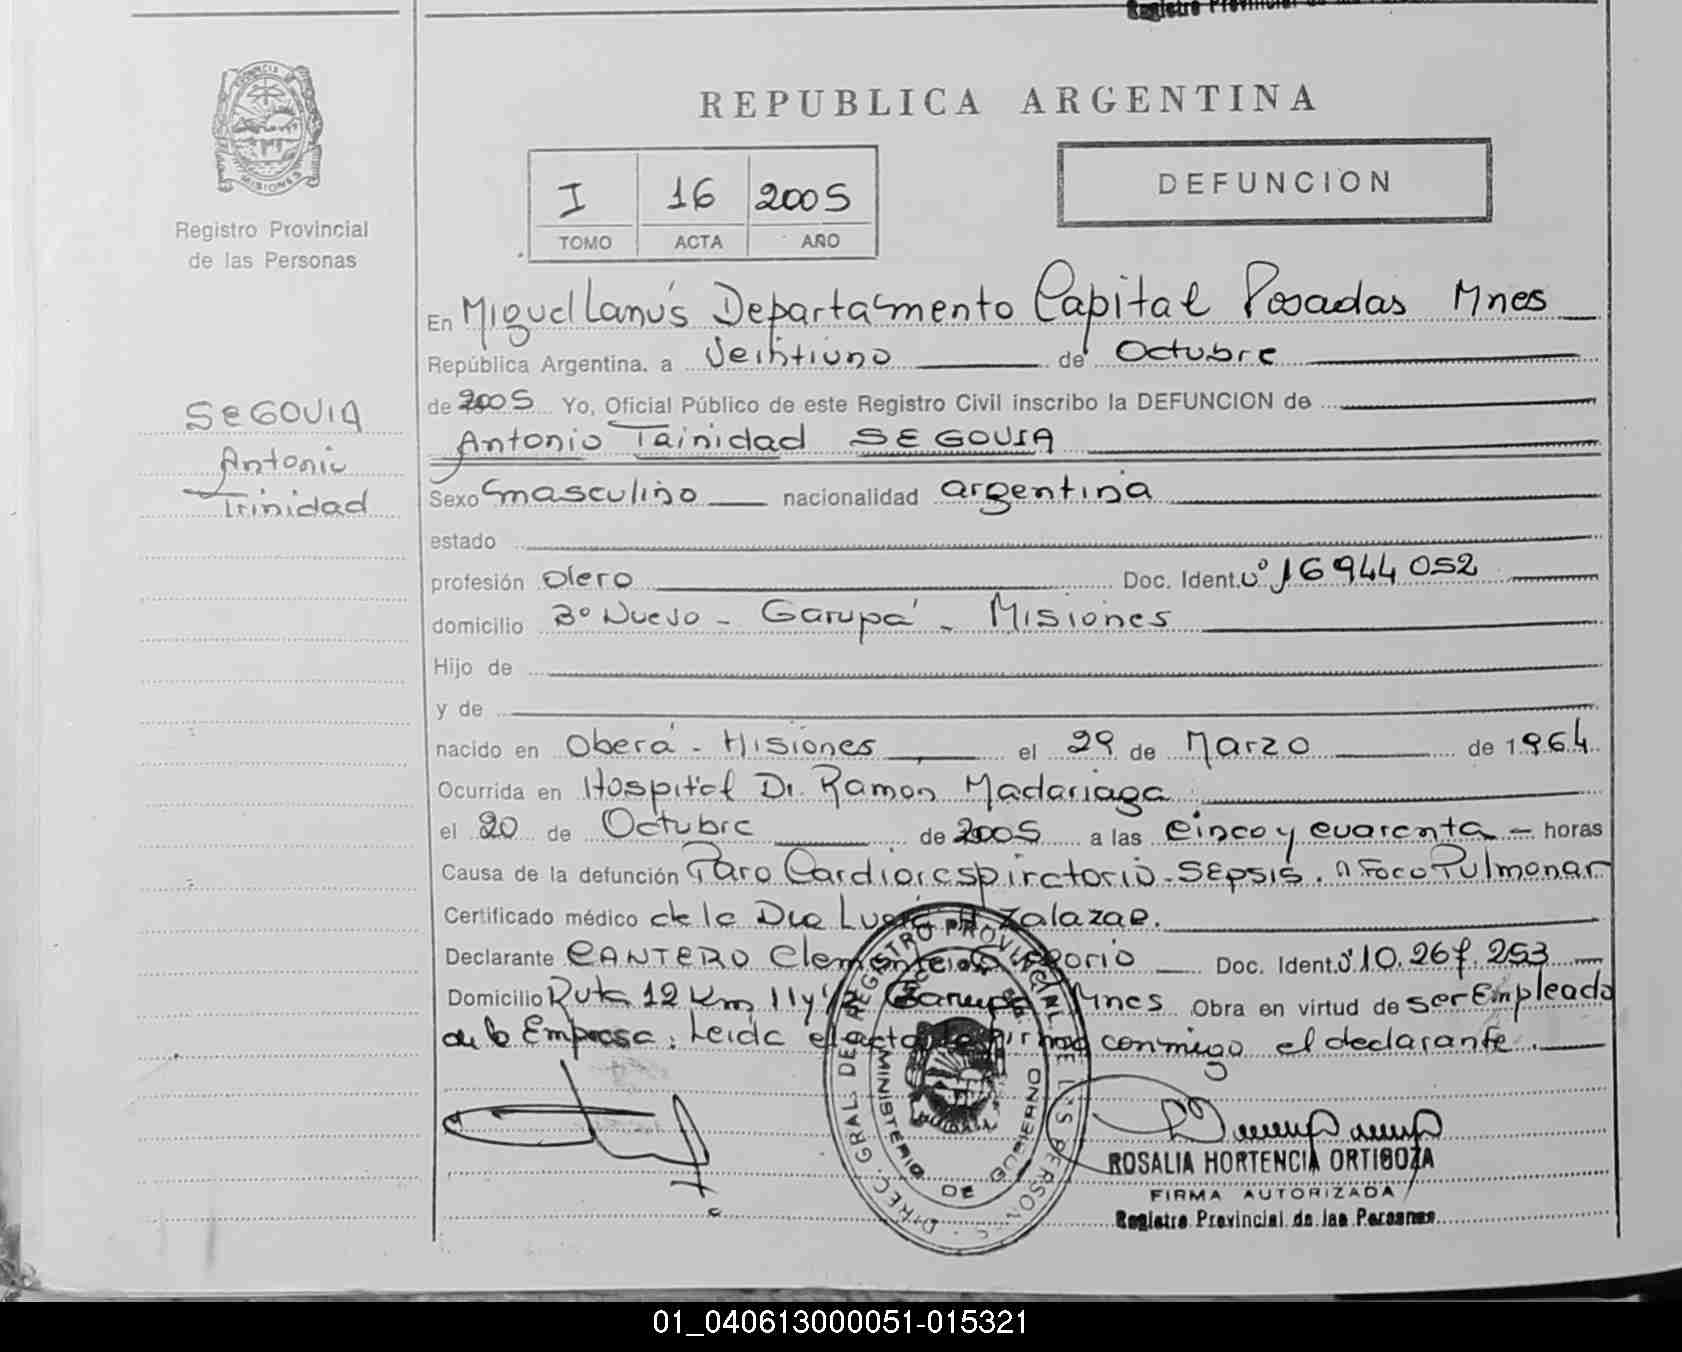 Registro Provincial de las Personas
PROVINCIA DE MISIONES
Registro Provincial
de las Personas
REPUBLICA ARGENTINA
I 16 2005
TOMO ACTA AÑO
DEFUNCION
En Miguel Lanús Departamento Capital Posadas Mnes
República Argentina, a Veintiuno de Octubre
de 2005 Yo, Oficial Público de este Registro Civil inscribo la DEFUNCION de
SEGOVIA
Antonio
Trinidad
Antonio Trinidad SEGOVIA
Sexo masculino nacionalidad argentina
estado
profesión olero Doc. Ident. Nº 16944052
domicilio Bº Nuevo - Garupá - Misiones
Hijo de
y de
nacido en Oberá - Misiones el 29 de Marzo de 1964
Ocurrida en Hospital Dr. Ramón Madariaga
el 20 de Octubre de 2005 a las cinco y cuarenta horas
Causa de la defunción Paro Cardiorespiratorio - Sepsis. a Foco Pulmonar
Certificado médico de la Dra Lucía A Zalazar.
Declarante CANTERO Clemente Gregorio Doc. Ident. Nº 10.267.253
Domicilio Ruta 12 Km 11 y 1/2 Garupá Mnes Obra en virtud de ser Empleado
de la Empresa. Leida el acta la firma conmigo el declarante.
DIREC. GRAL. DEL REGISTRO PROVINCIAL DE LAS PERSONAS
MINISTERIO DE GOBIERNO
ROSALIA HORTENCIA ORTIGOZA
FIRMA AUTORIZADA
Registro Provincial de las Personas
01_040613000051-015321